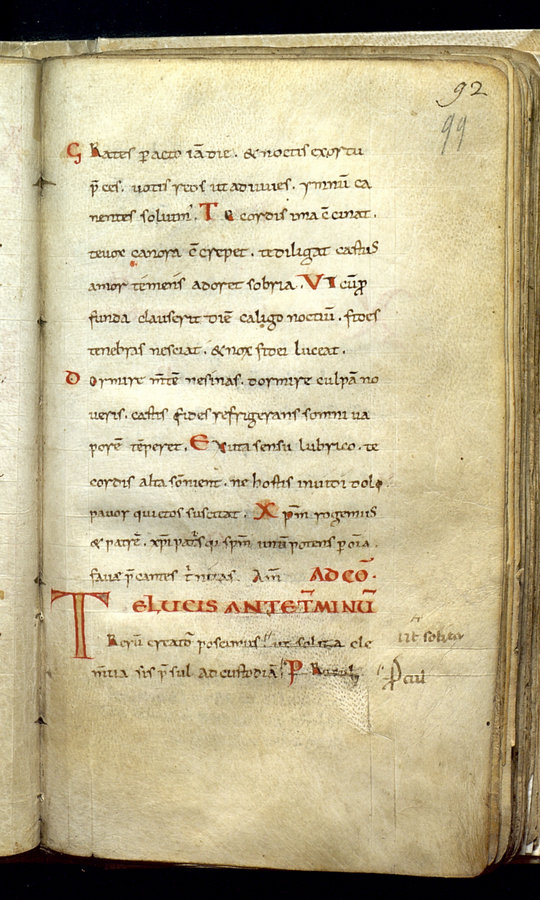 92
99
GRates pacto iā die · & noctis exortu
p̄ces · uotis reos ut adiuues · ymnū ca
nentes soluim̄ · Te cordis ima c̄cinat ·
te uox canora c̄crepet · te diligat castus
amor te mens adoret sobria · VT cū p̄
funda clauserit diē caligo noctiū · fides
tenebras nesciat · & nox fidei luceat ·
Dormire m̄tē ne sinas · dormire culpa no
uerit · castis fides refrigerans somni ua
porē tēperet · Exuta sensu lubrico · te
cordis alta sōnient · ne hostis inuidi dolo
pauor quietos suscitat · Xp̄m rogemus
& patrē · xp̄i patrisq; sp̄m unū potens p om̄a ·
faue p̄cantes t̄nitas · Am̄ AD CŌ ·
TE LUCIS ANTE T̄MINŪ
Rerū creator poscimus · ut solita cle
m̄tia sis p̄sul ad custodiā · P
ut solita
Pcul